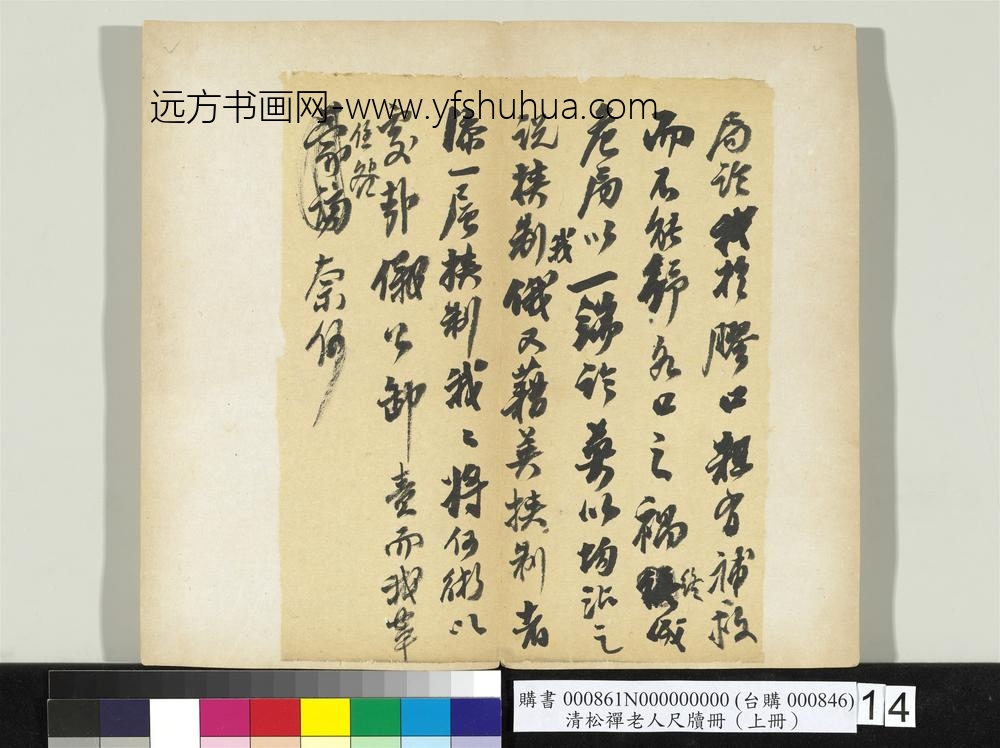 远方书画网-www.yfshuhua.com
局詐我於膠口粗有補救
而不能紓各口之禍終成
危局以一端詐英以均沾之
說挾制我俄又藉英挾制者
添一層挾制我〻將何術以
俄公卸責而我幸
任咎
奈何
購書 000861N000000000 (台購 000846)
清松禪老人尺牘冊（上冊）
14